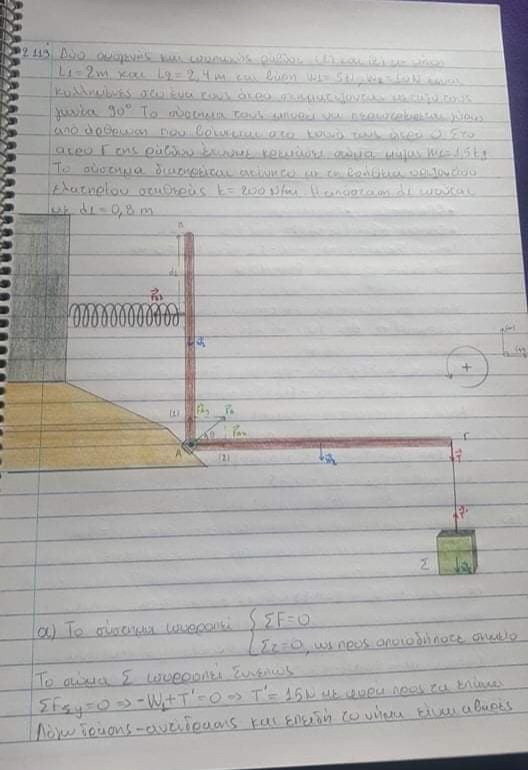 2.113 Δύο ομογενείς και ισοπαχείς ράβδοι (1) και (2) με μήκη
L1 = 2m και L2 = 2,4m και βάρη w1 = 5N, w2 = 10N είναι
κολλημένες στο ένα τους άκρο σχηματίζοντας μεταξύ τους
γωνία 90° Το σύστημα τους μπορεί να περιστρέφεται γύρω
από άρθρωση που βρίσκεται στο κοινό τους άκρο Στο
άκρο Γ της ράβδου έχουμε κρεμάσει σώμα μάζας 1,5kg
Το σύστημα διατηρείται ακίνητο με τη βοήθεια οριζόντιου
ελατηρίου σταθεράς k = 200 N/m Η απόσταση d1 ισούται
με d1 = 0,8 m
d1
(1)
A
(2)
Γ
+
Σ
α) Το σύστημα ισορροπεί { ΣF=0
Στ=0, ως προς οποιοδήποτε σημείο
Το σώμα Σ ισορροπεί Συνεπώς
ΣFΣy=0 => -W+T'=0 => T' = 15N με φορά προς τα επάνω
Λόγω δράσης-αντίδρασης και επειδή το νήμα είναι αβαρές